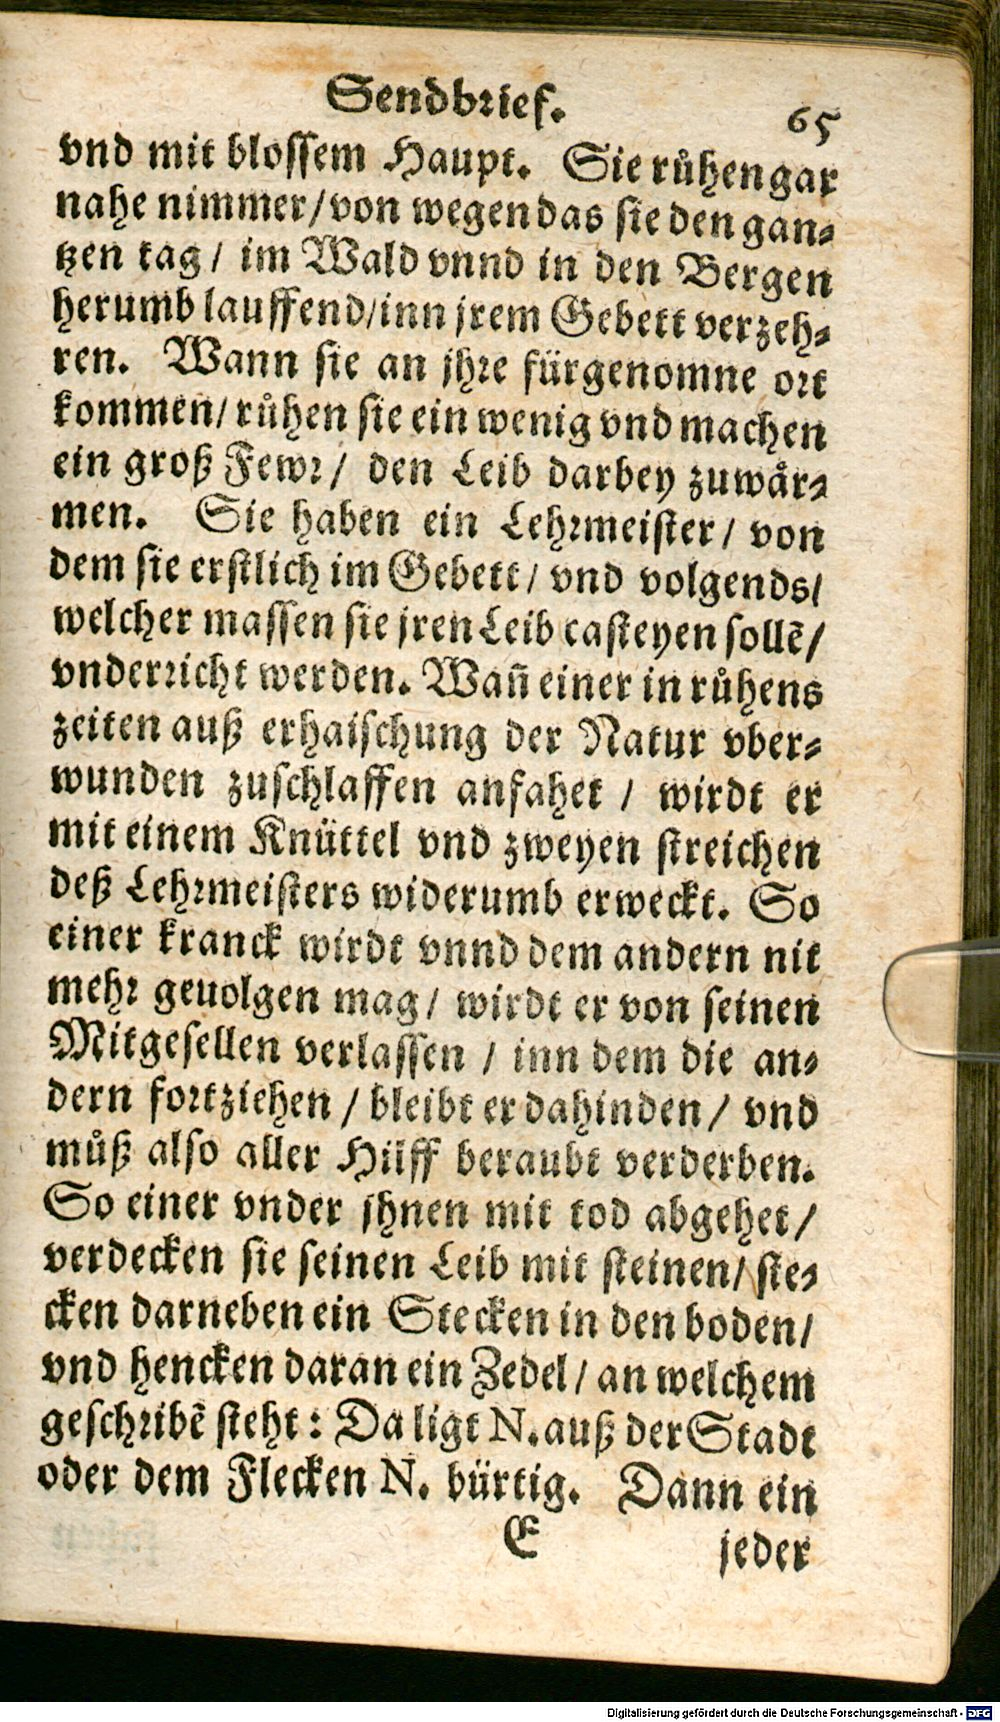 Sendbrief. 65
vnd mit blossem Haupt. Sie růhen gar
nahe nimmer/von wegen das sie den gan-
tzen tag/ im Wald vnnd in den Bergen
herumb lauffend/inn jrem Gebett verzeh-
ren. Wann sie an jhre fürgenomne ort
kommen/ růhen sie ein wenig vnd machen
ein groß Fewr/ den Leib darbey zuwår-
men. Sie haben ein Lehrmeister/ von
dem sie erstlich im Gebett/ vnd volgends/
welcher massen sie jren Leib casteyen sollẽ/
vnderricht werden. Wañ einer in růhens
zeiten auß erhaischung der Natur vber-
wunden zuschlaffen anfahet / wirdt er
mit einem Knüttel vnd zweyen streichen
deß Lehrmeisters widerumb erweckt. So
einer kranck wirdt vnnd dem andern nit
mehr geuolgen mag/ wirdt er von seinen
Mitgesellen verlassen / inn dem die an-
dern fortziehen / bleibt er dahinden/ vnd
můß also aller Hilff beraubt verderben.
So einer vnder jhnen mit tod abgehet/
verdecken sie seinen Leib mit steinen/ ste-
cken darneben ein Stecken in den boden/
vnd hencken daran ein Zedel/ an welchem
geschribẽ steht: Da ligt N. auß der Stadt
oder dem Flecken N. bürtig. Dann ein
E jeder
Digitalisierung gefördert durch die Deutsche Forschungsgemeinschaft - DFG